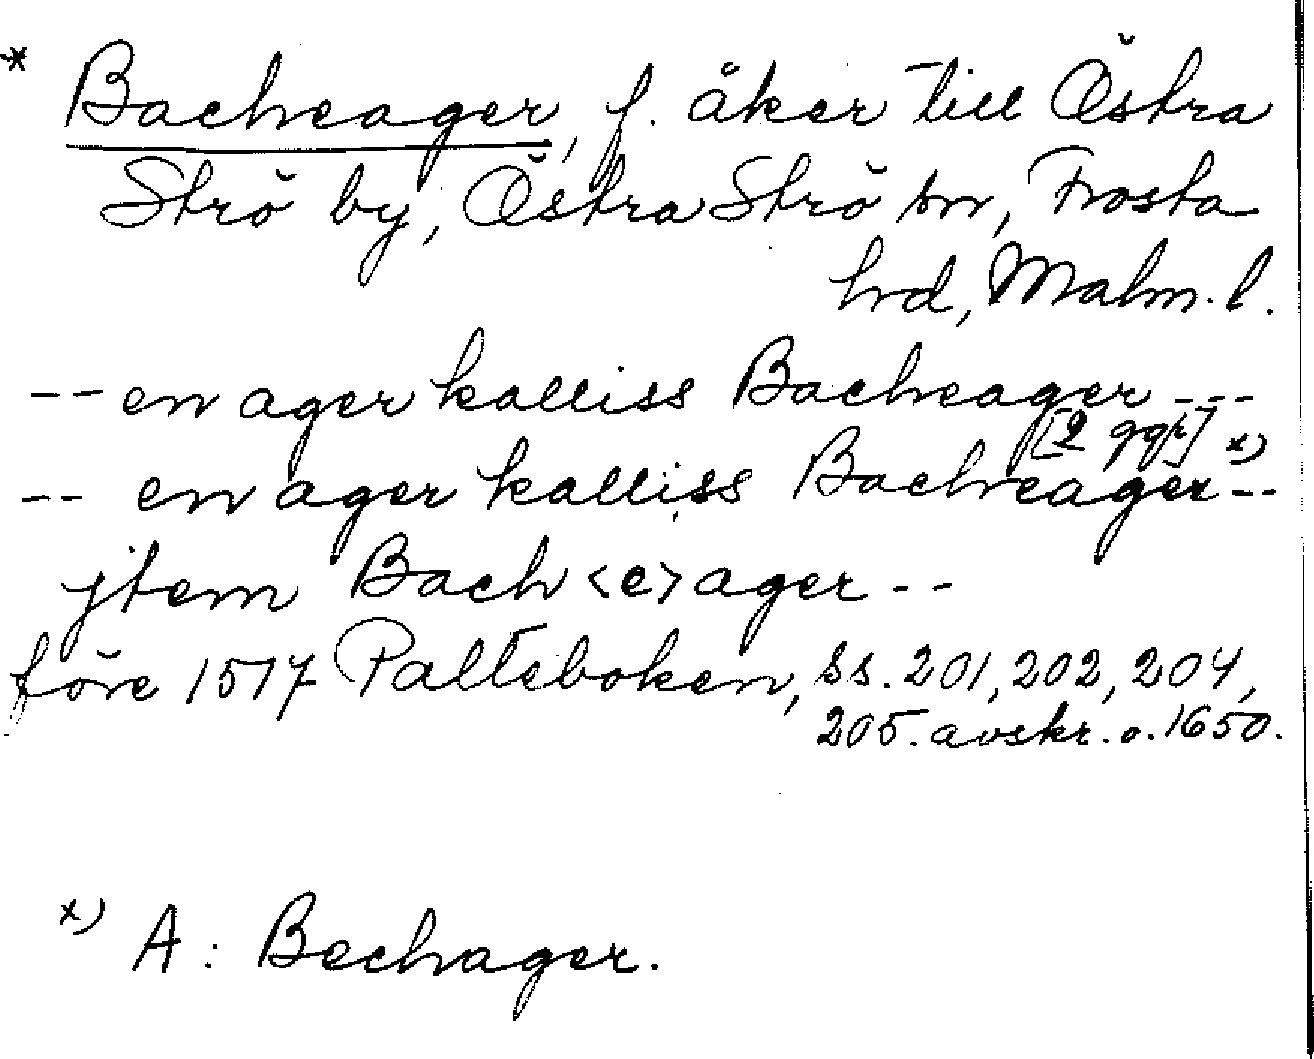 * Bacheager, f. åker till Östra
Strö by, Östra Strö sn, Frosta
hd, Malm. l.
-- en ager kalliss Bacheager ---
[2 ggr] x)
-- en ager kalliss Bacheager --
jtem Bach<e>ager --
före 1517 Palteboken, ss. 201, 202, 204,
205. avskr. o. 1650.
x) A: Bechager.